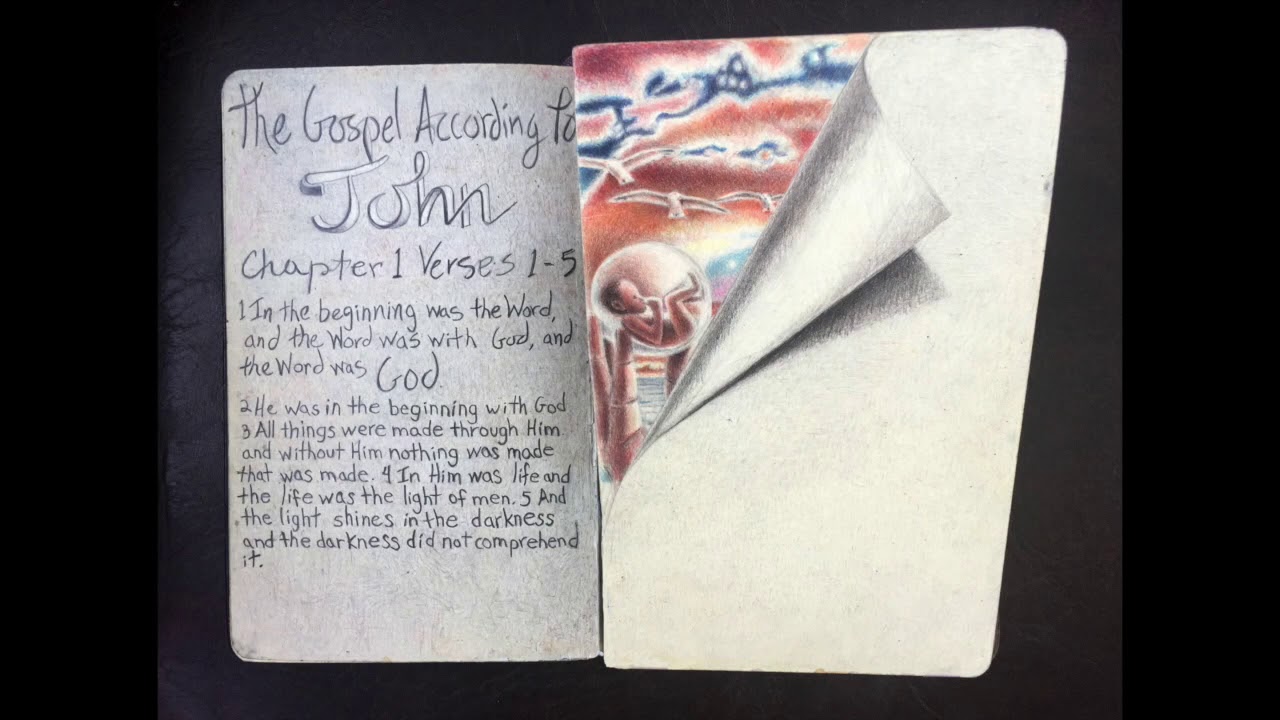 The Gospel According to
John
Chapter 1 Verses 1-5
1 In the beginning was the Word,
and the Word was with God, and
the Word was God.
2 He was in the beginning with God
3 All things were made through Him
and without Him nothing was made
that was made. 4 In Him was life and
the life was the light of men. 5 And
the light shines in the darkness
and the darkness did not comprehend
it.